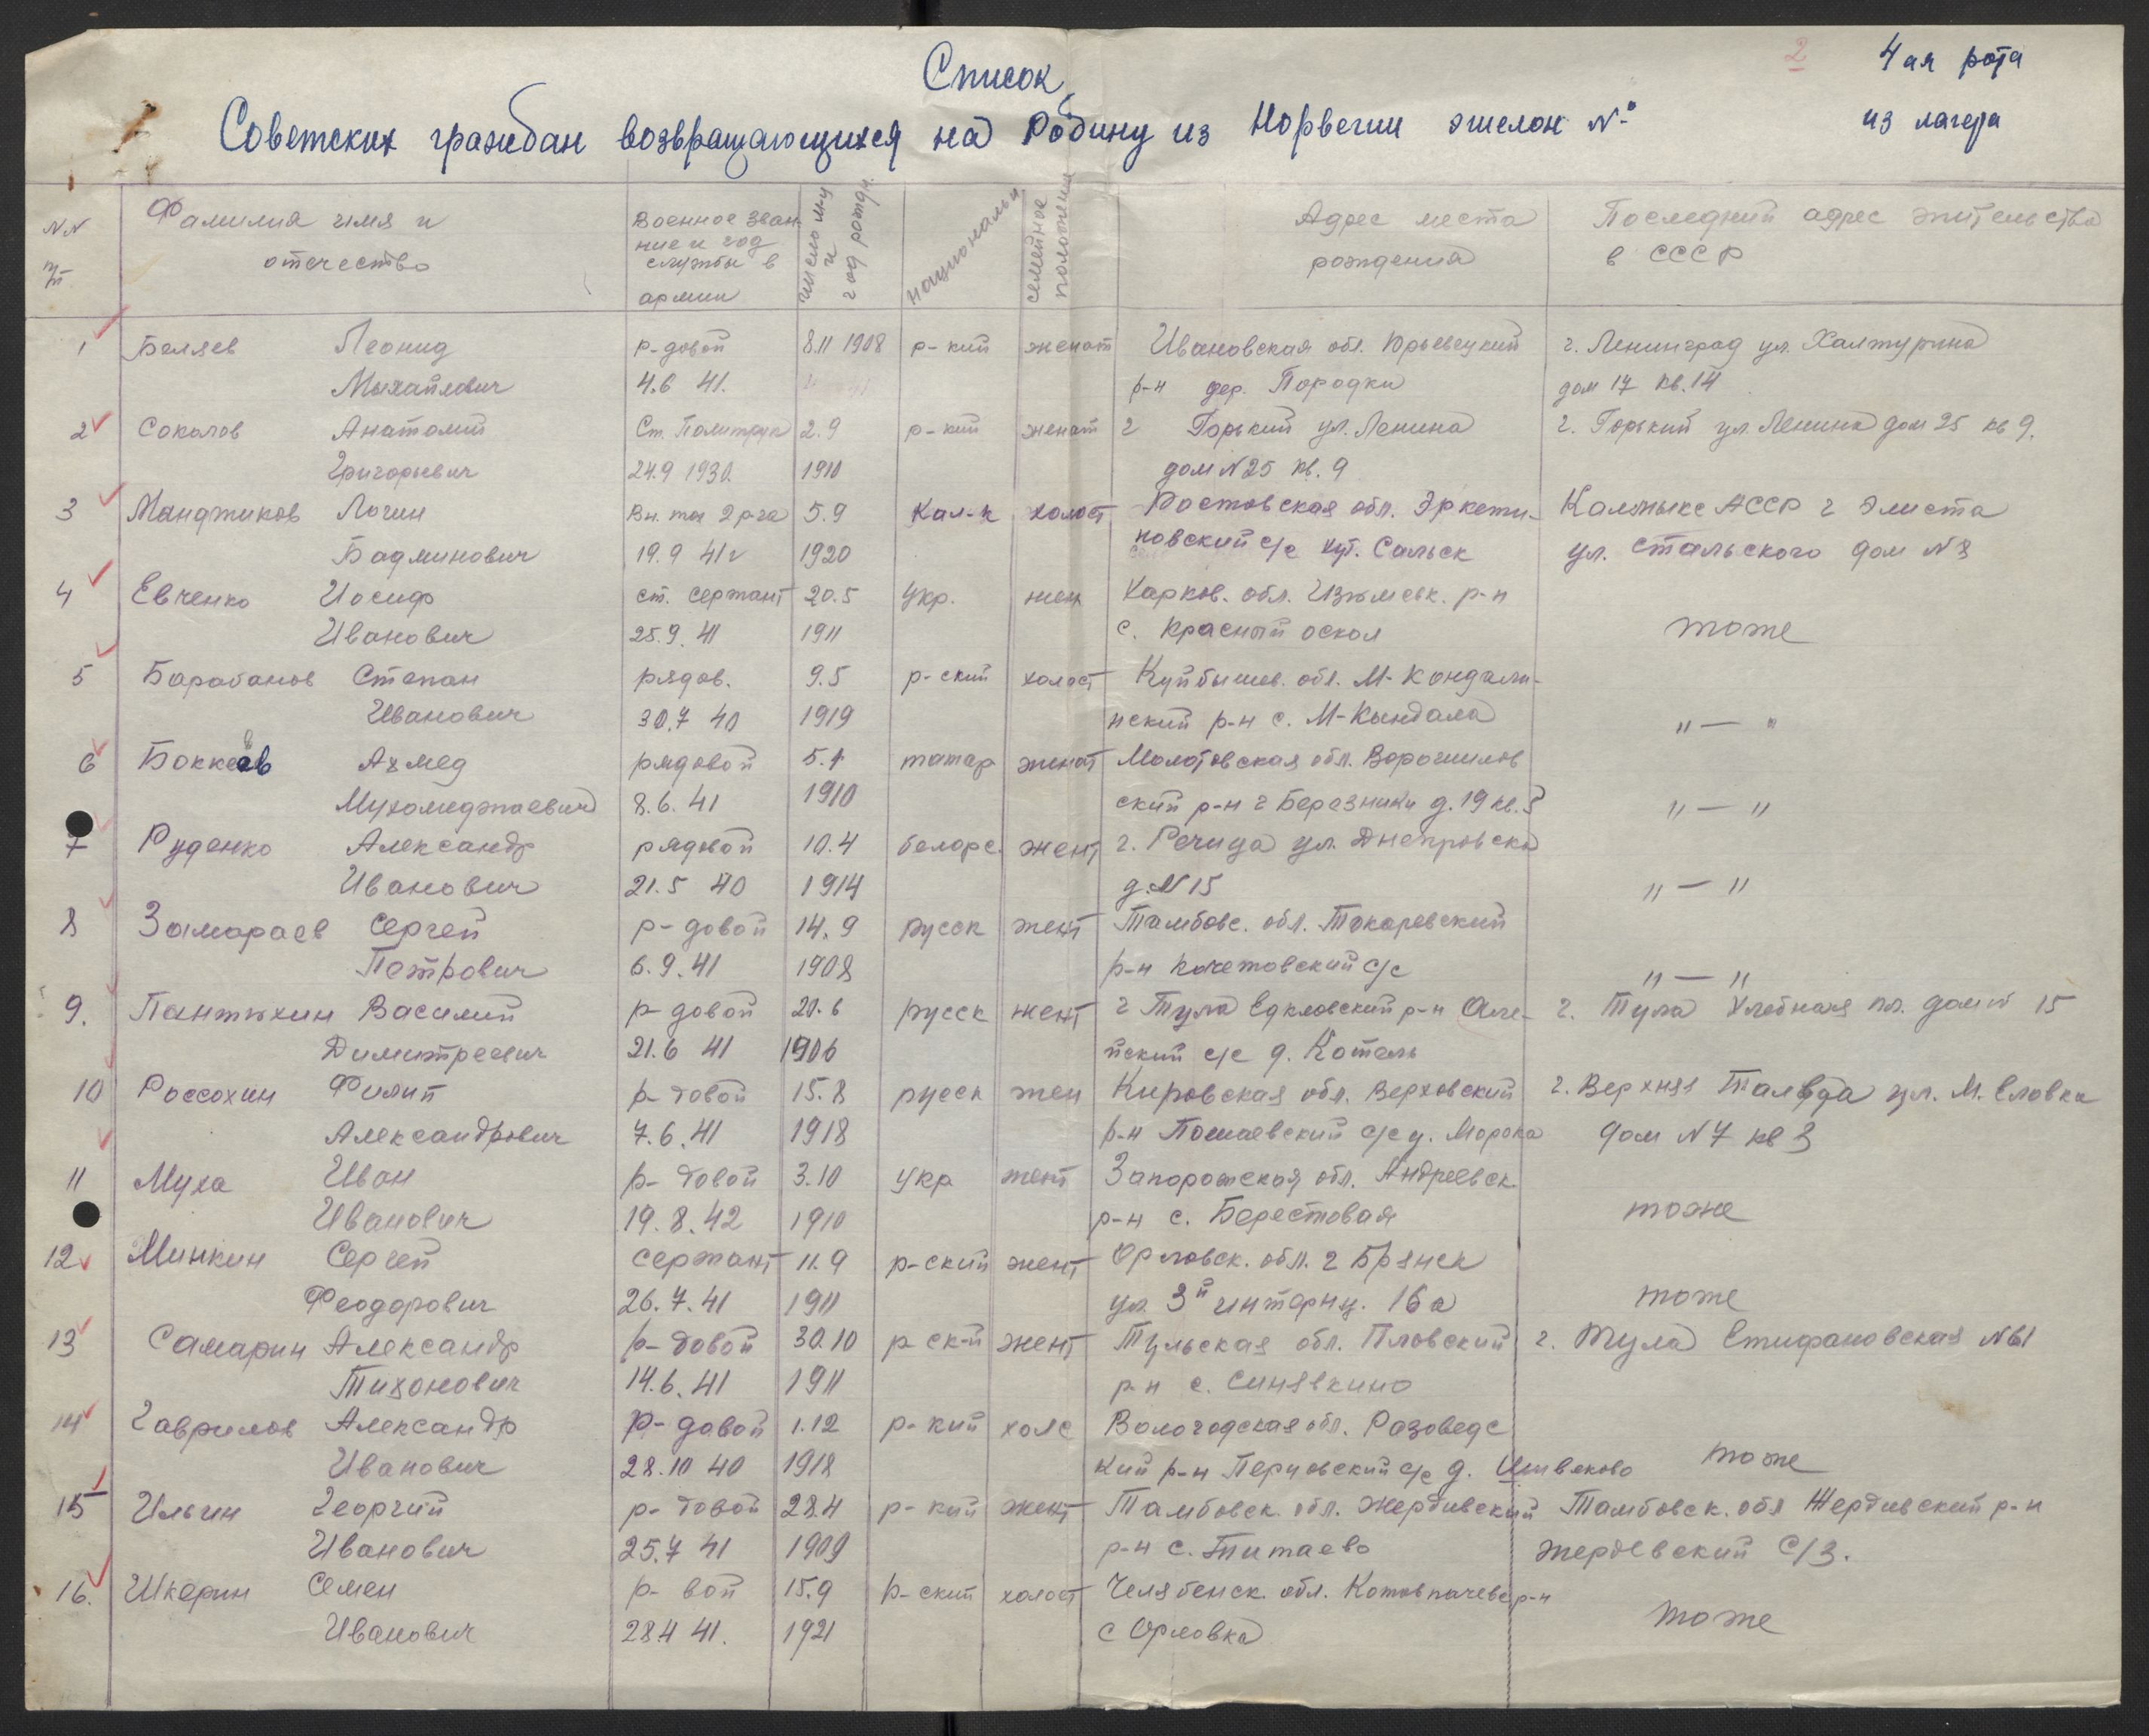 2
4ая рота
Список
Советских граждан возвращающихся на Родину из Норвегии эшелон №
из лагеря
NN п/п
Фамилия имя и отчество
Военное звание и год службы в армии
число м-ц и год рожд.
национальн
семейное положение
Адрес места рождения
Последний адрес жительства в СССР
1 Беляев Леонид р-довой 8.11 1908 р-кий женат Ивановская обл. Юрьевецкий г. Ленинград ул. Халтурина
Михайлович 4.6 41. р-н дер. Породки дом 17 кв. 14
2 Соколов Анатолий Ст. Политрук 2.9 р-кий женат г Горький ул. Ленина г. Горький ул. Ленина дом 25 кв 9.
Григорьевич 24.9 1930. 1910 дом N25 кв. 9
3 Манджиков Логин Вн. тех 2 р-га 5.9 Кал-к холост Ростовская обл. Эркети- Калмыкс АССР г Элиста
Бадминович 19.9 41г 1920 новский с/с хут. Сальск ул. Стальского дом N8
4 Евченко Иосиф ст. сержант 20.5 укр. жен Харков. обл. Изюмск. р-н
Иванович 25.9. 41 1911 с. Красный оскол тоже
5 Барабанов Степан рядов. 9.5 р-ский холост Куйбышев. обл. М-Кандали-
Иванович 30.7 40 1919 нский р-н с. М-Кандала "—"
6 Боккеев Ахмед рядовой 5.1 татар женат Молотовская обл. Ворошилов
Мухомеджаевич 8.6.41 1910 ский р-н г Березники д. 19 кв. 5 "—"
7 Руденко Александр рядовой 10.4 белорс. жент г. Речица ул. Днепровска
Иванович 21.5 40 1914 д. N15 "—"
8 Замараев Сергей р-довой 14.9 русск жент Тамбовс. обл. Токаревский
Петрович 6.9.41 1908 р-н Кочетовский с/с "—"
9. Пантюхин Василий р-довой 20.6 русск жент г Тула Едкловский р-н Але- г. Тула Хлебная пл. дом N 15
Димитреевич 21.6 41 1906 йский с/с д. Котель
10 Россохин Филип р-довой 15.8 русск жен Кировская обл. Верховский г. Верхняя Талвда ул. М. Еловка
Александрович 7.6.41 1918 р-н Пошаевский с/с у. Морока дом N7 кв 3
11 Муха Иван р-довой 3.10 укр жент Запорожская обл. Андреевск
Иванович 19.8.42 1910 р-н с. Берестовая тоже
12 Минкин Сергей сержант 11.9 р-ский жент Орловск. обл. г Брянск
Феодорович 26.7.41 1911 ул. 3й интерну. 16а тоже
13 Самарин Александр р-довой 30.10 р ск-й жент Тульская обл. Пловский г. Тула Епифановская N61
Тихонович 14.6.41 1911 р-н с. Синявкино
14 Гаврилов Александр р-довой 1.12 р-кий холс Вологодская обл. Разоведс
Иванович 28.10 40 1918 кий р-н Перцовский с/с д. Ишвяково тоже
15 Ильин Георгий р-довой 28.4 р-кий жент Тамбовск. обл. Жердивский Тамбовск. обл Жердивский р-н
Иванович 25.7 41 1909 р-н с. Питаево жердевский С/З.
16. Шкерин Семен р-вой 15.9 р-ский холост Челябенск. обл. Котовпачевс р-н
Иванович 28.4 41. 1921 с Орловка тоже